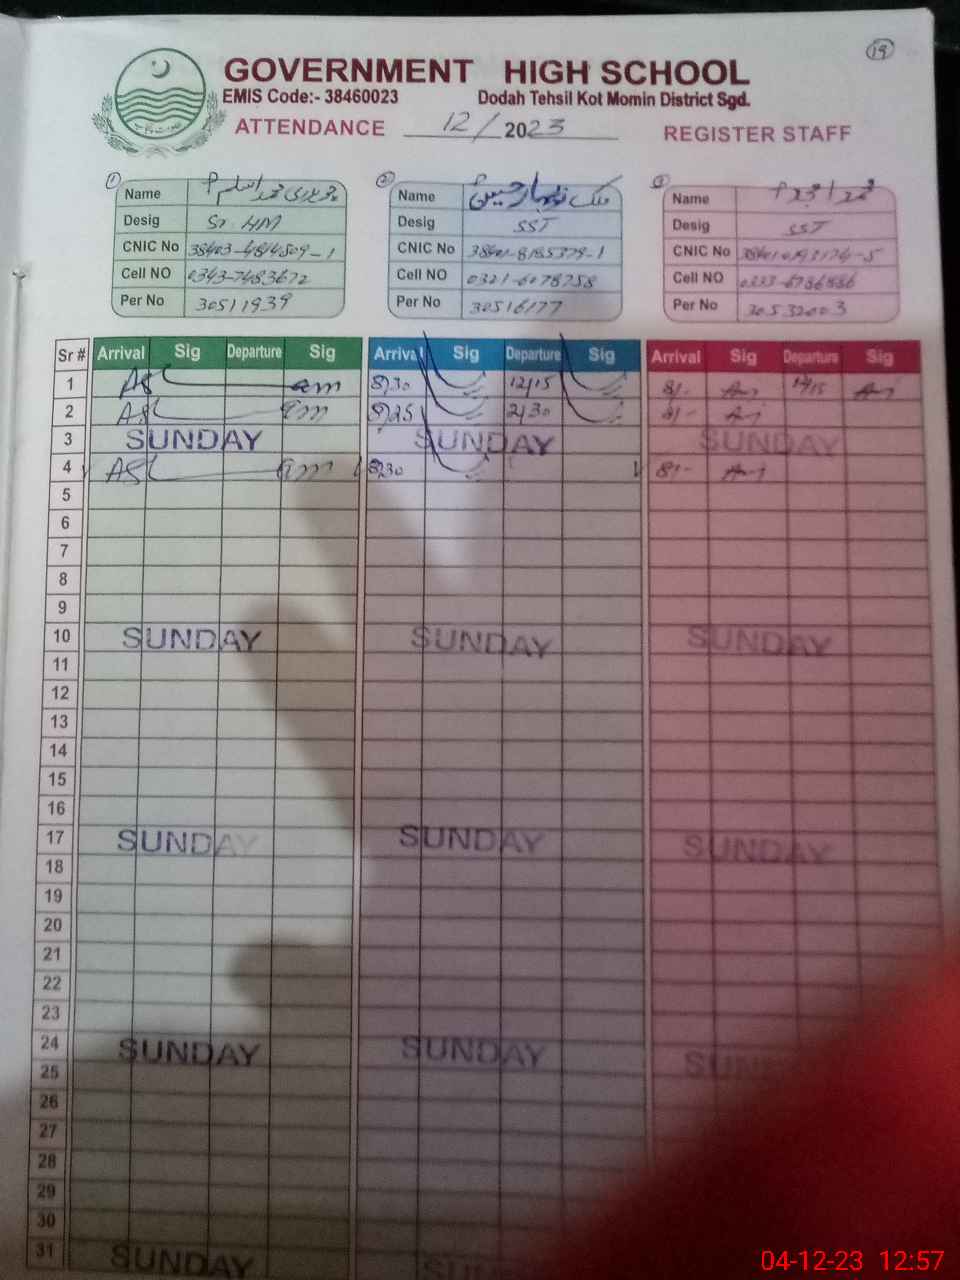 19
GOVERNMENT HIGH SCHOOL
EMIS Code:- 38460023 Dodah Tehsil Kot Momin District Sgd.
ATTENDANCE 12/2023 REGISTER STAFF
1 2 3
Name چوہدری محمد اسلم Name ملک Name محمد امجد
Desig Sr. HM Desig SST Desig SST
CNIC No 38403-4814509-1 CNIC No 38401-8185379-1 CNIC No
Cell NO 0343-7483672 Cell NO 0321-6078758 Cell NO 0333-6736886
Per No 30511939 Per No 30516177 Per No 30532003
Sr # Arrival Sig Departure Sig Arrival Sig Departure Sig Arrival Sig Departure Sig
1 8/30 12/15 8/- 12/15
2 8/25 2/30 8/-
3 SUNDAY SUNDAY SUNDAY
4 8/30 8/-
5
6
7
8
9
10 SUNDAY SUNDAY SUNDAY
11
12
13
14
15
16
17 SUNDAY SUNDAY SUNDAY
18
19
20
21
22
23
24 SUNDAY SUNDAY SUN
25
26
27
28
29
30
31 SUNDAY SUND
04-12-23 12:57